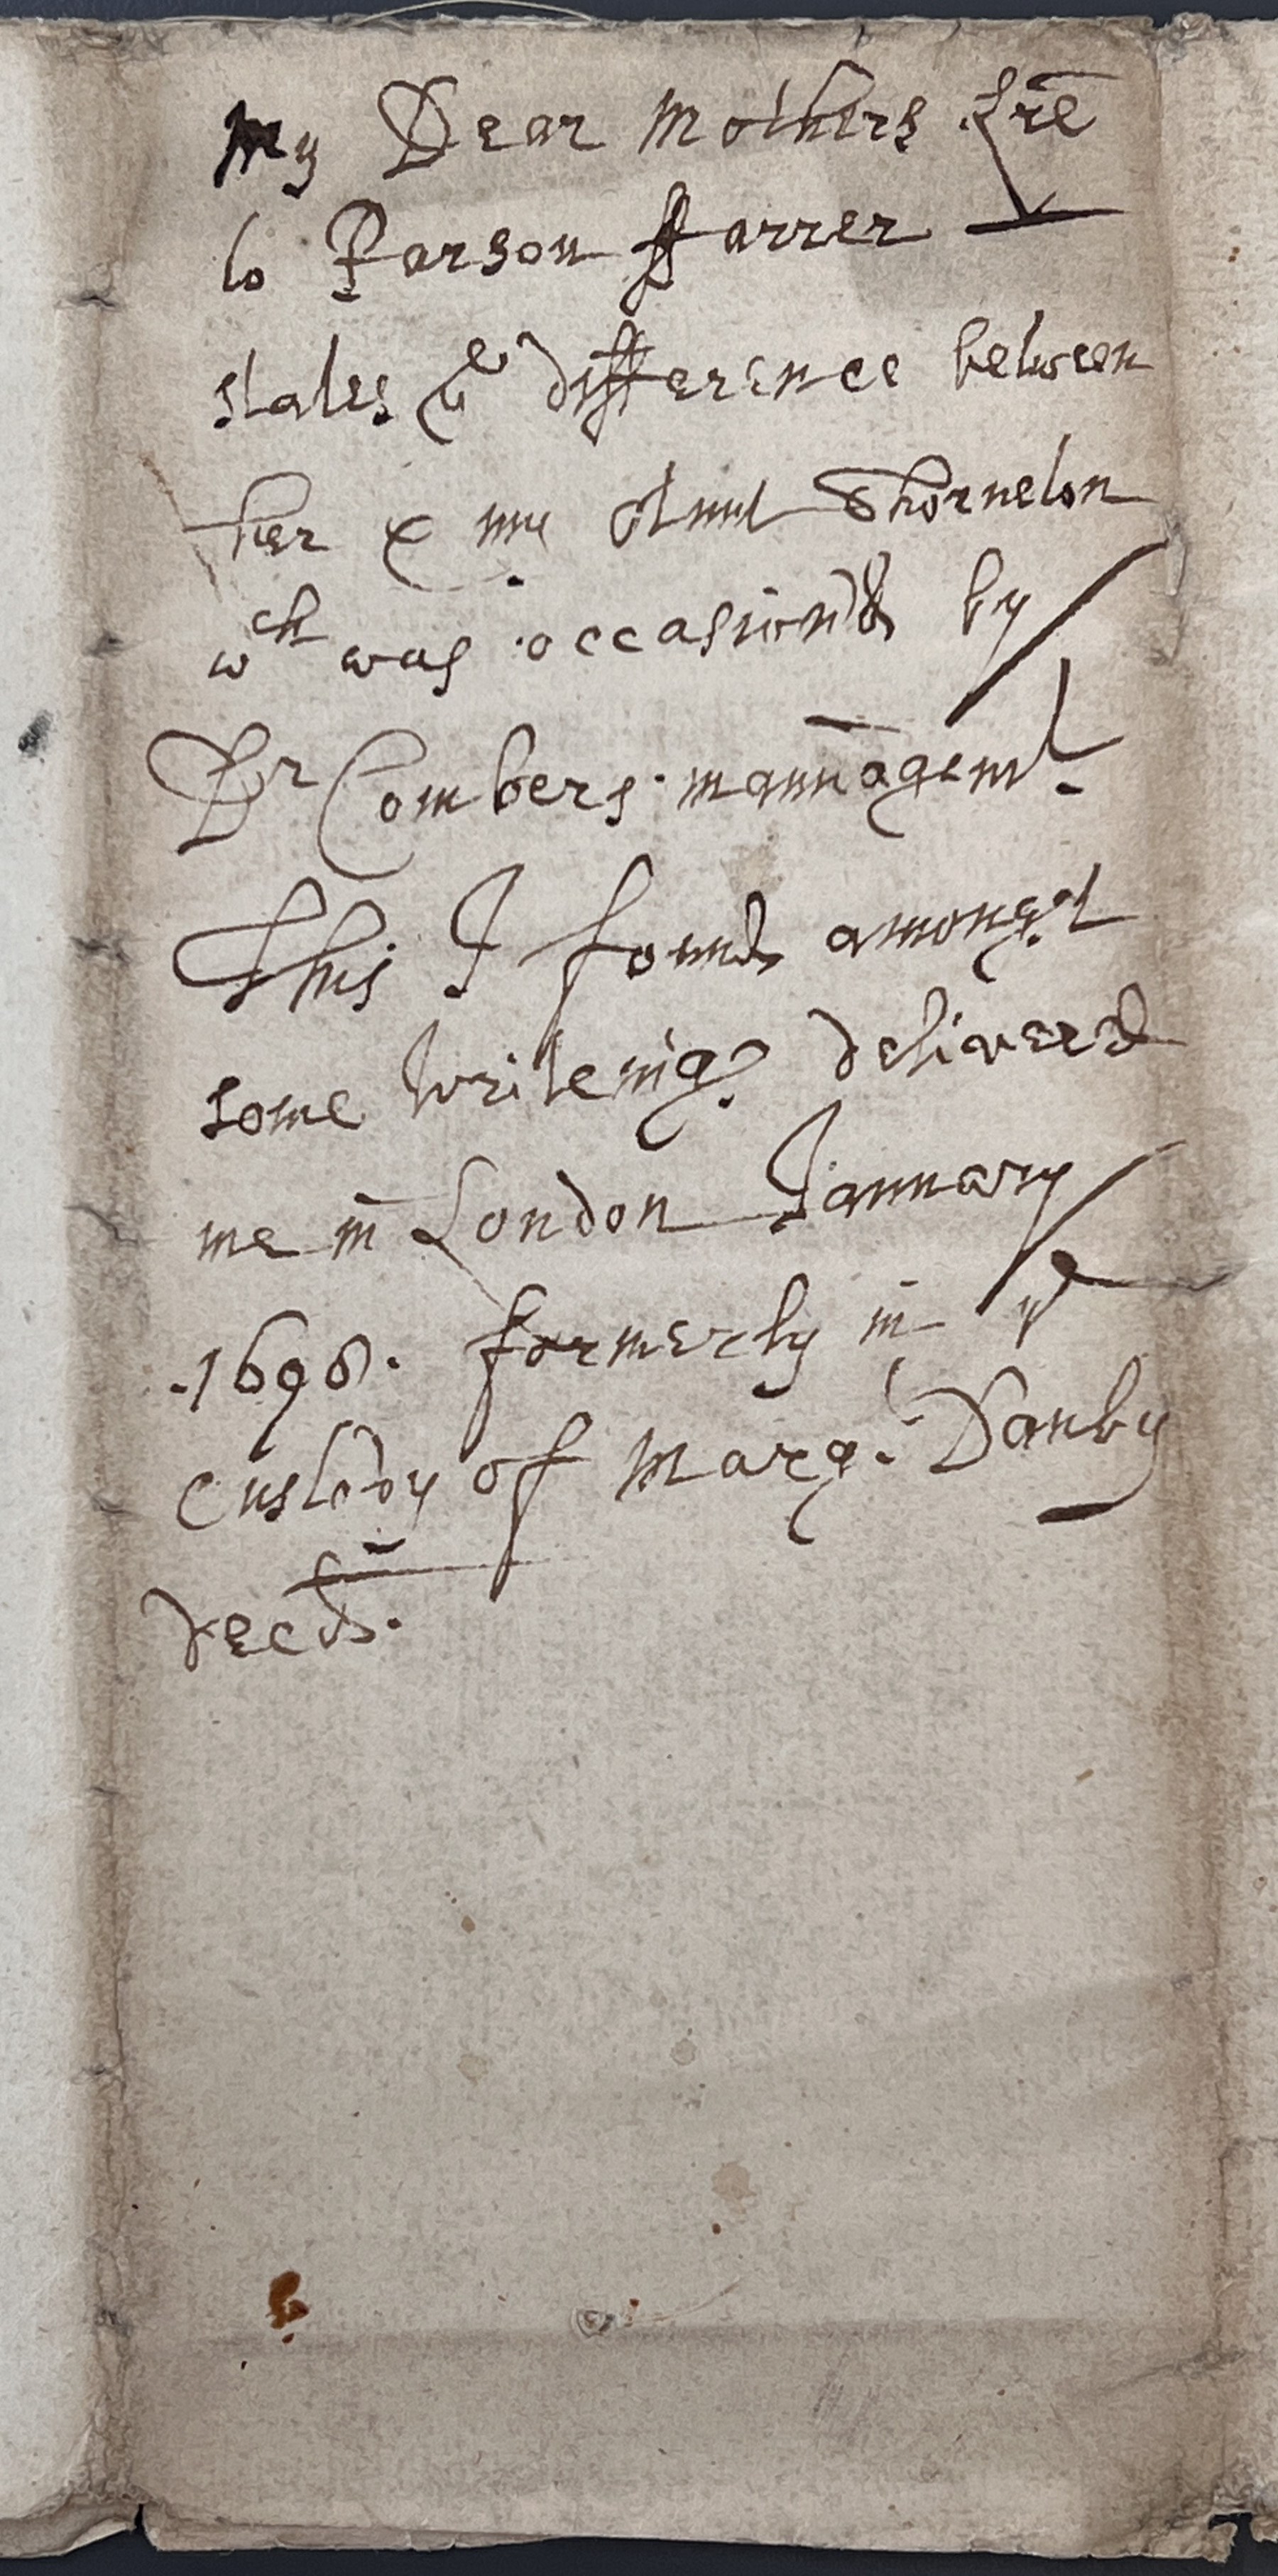 my Dear mothers Lre
to Parson Farrer
states ye difference between
her & my Aunt Thorneton
wch was occasion'd by
Dr Combers mannagemt.
This I found amongst
some writeings delivered
me in London January
1698. formerly in ye
custody of Marg. Danby
decd.